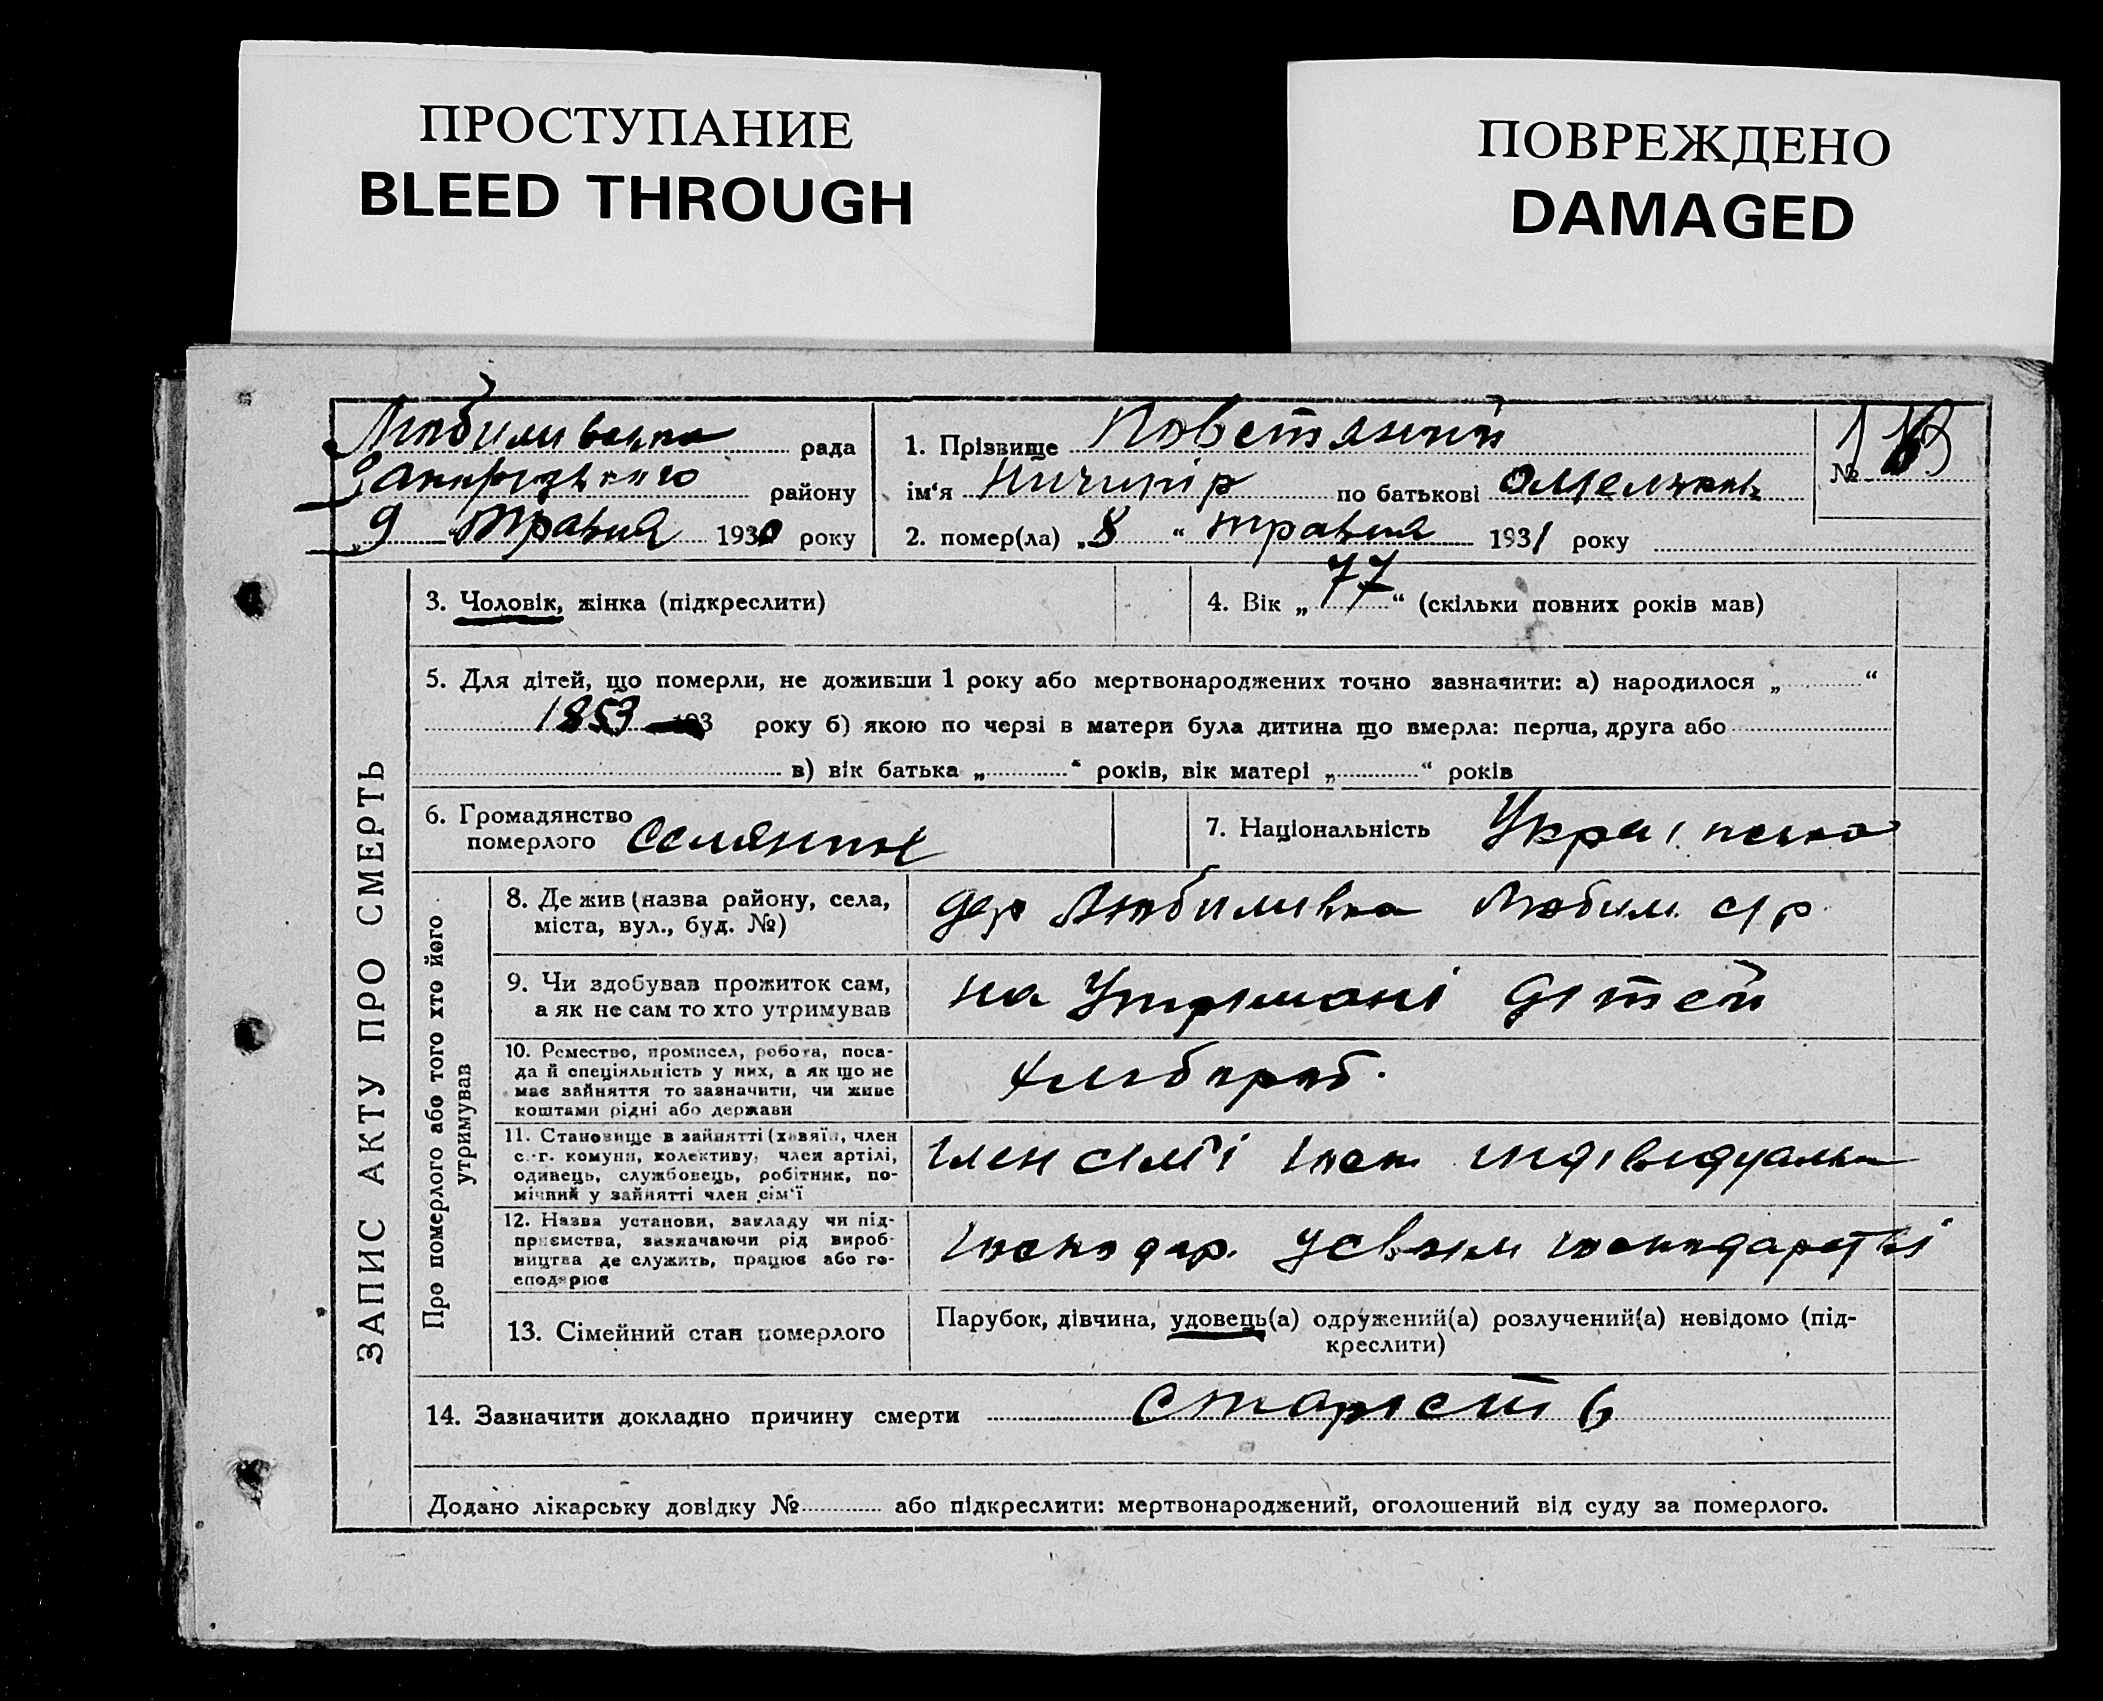 ПРОСТУПАНИЕ
BLEED THROUGH
ПОВРЕЖДЕНО
DAMAGED
Любимівська рада
Запорізького району
„ 9 “ травня 1930 року
1. Прізвище Повстяний
№
ім‘я Ничипір по батькові Омелькові
2. помер(ла) „ 8 “ травня 1931 року
ЗАПИС АКТУ ПРО СМЕРТЬ
3. Чоловік, жінка (підкреслити)
4. Вік „ 77 “ (скільки повних років мав)
5. Для дітей, що померли, не доживши 1 року або мертвонароджених точно зазначити: а) народилося „ “
1853 193 року б) якою по черзі в матери була дитина що вмерла: перша, друга або
в) вік батька „ “ років, вік матері „ “ років
6. Громадянство
померлого Селянин
7. Національність Українська
Про померлого або того хто його
утримував
8. Де жив (назва району, села,
міста, вул., буд. №)
дер Любимівка Любим. с/р
9. Чи здобував прожиток сам,
а як не сам то хто утримував
на Утрімані дітей
10. Ремество, промисел, робота, поса-
да й спеціяльність у них, а як що не
має зайняття то зазначити, чи живе
коштами рідні або держави
хлібороб.
11. Становище в зайнятті (хазяїн, член
с.-г. комуни, колективу, член артілі,
одинець, службовець, робітник, по-
мічний у зайнятті член сім‘ї
член сімї госп. індівідуальн
12. Назва установи, закладу чи під-
приємства, зазначаючи рід вироб-
ництва де служить, працює або го-
сподарює
господар. у своїм господарстві
13. Сімейний стан померлого
Парубок, дівчина, удовець(а) одружений(а) розлучений(а) невідомо (під-
креслити)
14. Зазначити докладно причину смерти старість
Додано лікарську довідку № або підкреслити: мертвонароджений, оголошений від суду за померлого.